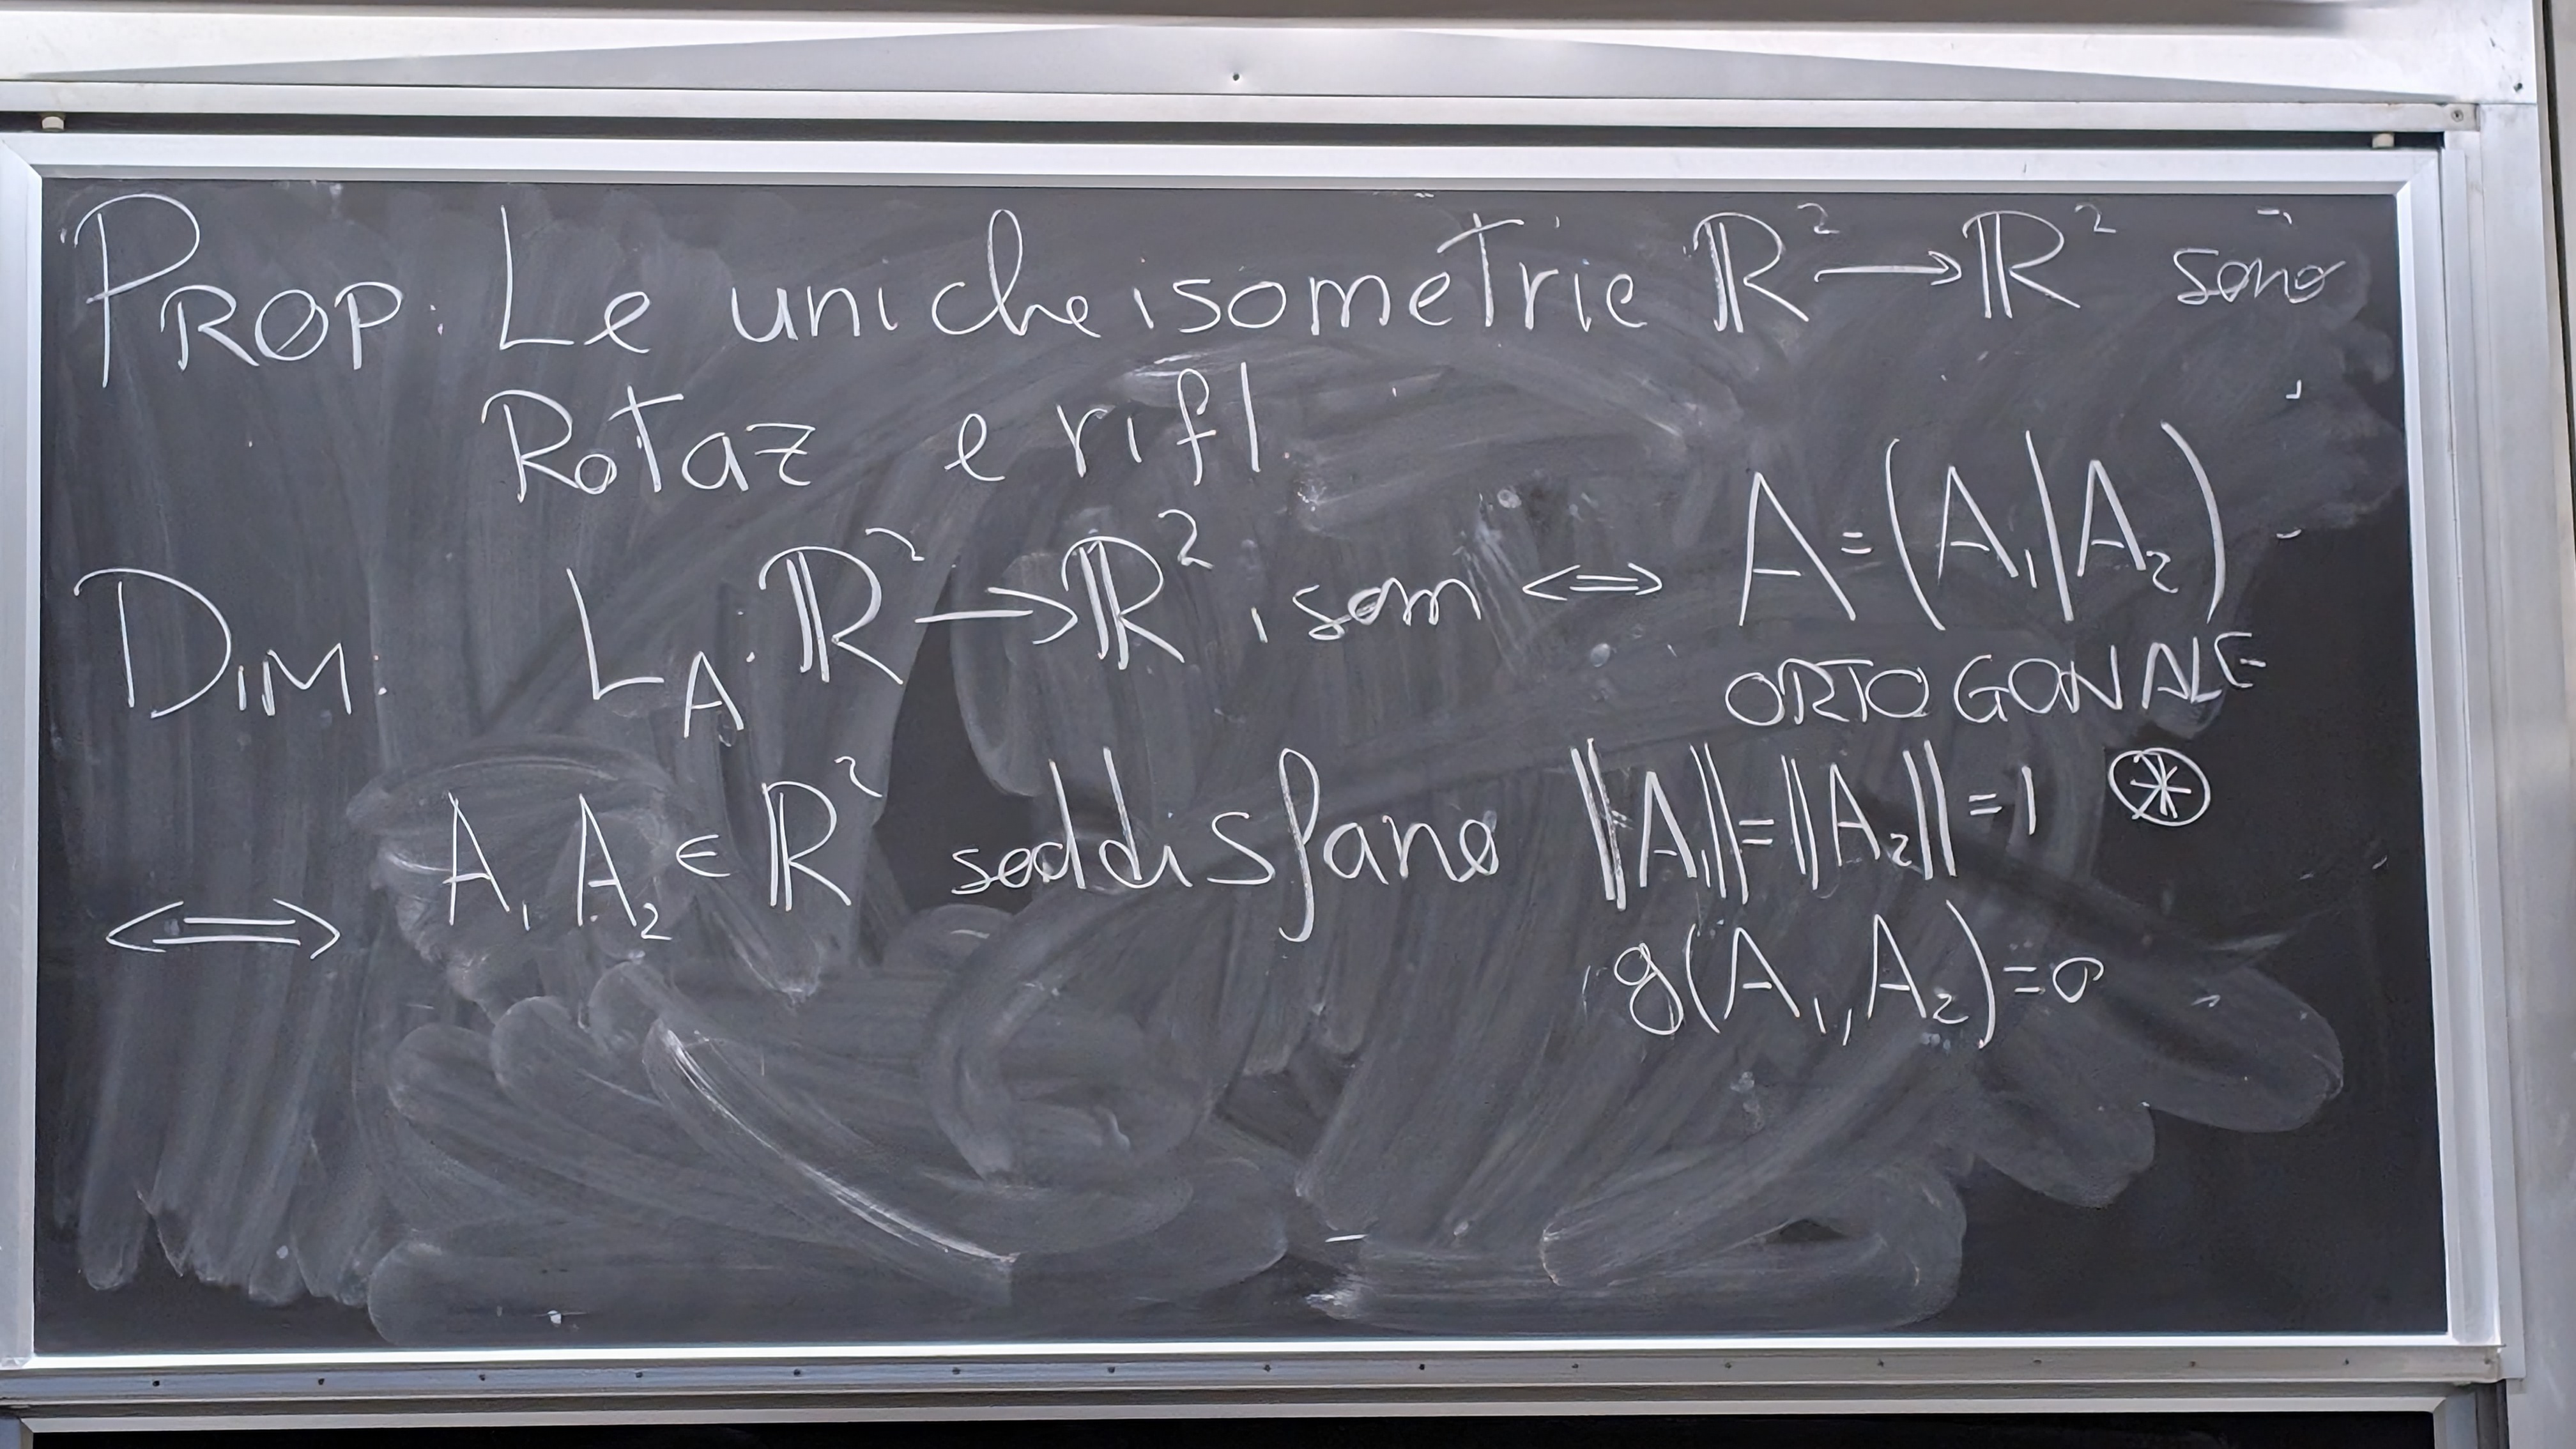 PROP: Le uniche isometrie ℝ² → ℝ² sono
Rotaz e rifl.
DIM: L_A: ℝ² → ℝ² isom ⇔ A = (A₁|A₂)
ORTOGONALE
⇔ A₁ A₂ ∈ ℝ² soddisfano ‖A₁‖=‖A₂‖=1 ⊛
g(A₁,A₂)=0